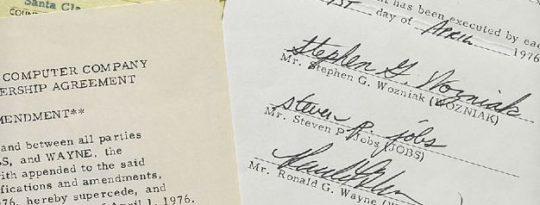 Santa Cla
COMPUTER COMPANY
ERSHIP AGREEMENT
MENDMENT**
and between all parties
BS, and WAYNE, the
with appended to the said
ifications and amendments,
976, hereby supercede, and
April 1, 1976.
nt has been executed by each
1ST day of APRIL 1976
Stephen G. Wozniak
Mr. Stephen G. Wozniak (WOZNIAK)
steven p. jobs
Mr. Steven P. Jobs (JOBS)
Mr. Ronald G. Wayne (W